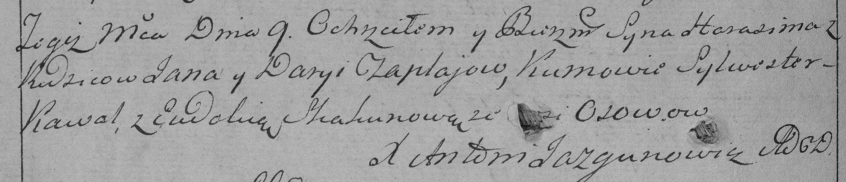 Tegiż Mca Dnia 9. Ochrzciłem y Bierzm Syna Harasima z
Rodzicow Jana y Daryi Czaplajow, Kumowie Sylwester
Kawal, z Eudokią ze Osowow
X Antoni Jazgunowicz